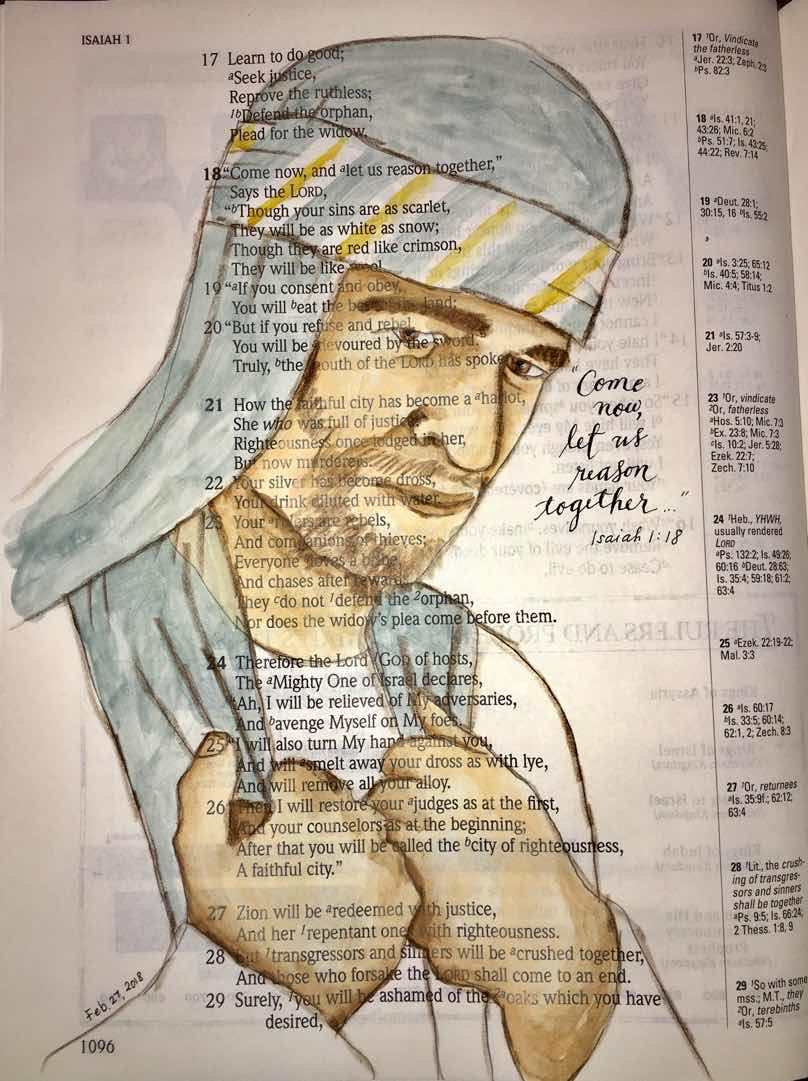 ISAIAH 1
17 Learn to do good;
aSeek justice,
Reprove the ruthless;
1bDefend the orphan,
Plead for the widow.
18 "Come now, and alet us reason together,"
Says the LORD,
"bThough your sins are as scarlet,
They will be as white as snow;
Though they are red like crimson,
They will be like wool.
19 "aIf you consent and obey,
You will beat the best of the land;
20 "But if you refuse and rebel,
You will be devoured by the sword."
Truly, bthe mouth of the LORD has spoken.
21 How the faithful city has become a aharlot,
She who was full of justice!
Righteousness once lodged in her,
But now murderers.
22 Your silver has become dross,
Your drink diluted with water.
23 Your arulers are rebels,
And companions of thieves;
Everyone bloves a bribe
And chases after reward.
They cdo not 1defend the 2orphan,
Nor does the widow's plea come before them.
24 Therefore the Lord 1GOD of hosts,
The aMighty One of Israel declares,
"Ah, I will be relieved of My adversaries,
And bavenge Myself on My foes.
25 "I will also turn My hand against you,
And will asmelt away your dross as with lye,
And will remove all your alloy.
26 Then I will restore your ajudges as at the first,
And your counselors as at the beginning;
After that you will be called the bcity of righteousness,
A faithful city."
27 Zion will be aredeemed with justice,
And her 1repentant ones with righteousness.
28 But 1transgressors and sinners will be acrushed together,
And those who forsake the LORD shall come to an end.
29 Surely, 1you will be ashamed of the 2aoaks which you have
desired,
1096
Feb. 27, 2018
"Come
now,
let us
reason
together..."
Isaiah 1:18
17 1Or, Vindicate
the fatherless
aJer. 22:3; Zeph. 2:3
bPs. 82:3
18 aIs. 41:1, 21;
43:26; Mic. 6:2
bPs. 51:7; Is. 43:25;
44:22; Rev. 7:14
19 aDeut. 28:1;
30:15, 16 bIs. 55:2
20 aIs. 3:25; 65:12
bIs. 40:5; 58:14;
Mic. 4:4; Titus 1:2
21 aIs. 57:3-9;
Jer. 2:20
23 1Or, vindicate
2Or, fatherless
aHos. 5:10; Mic. 7:3
bEx. 23:8; Mic. 7:3
cIs. 10:2; Jer. 5:28;
Ezek. 22:7;
Zech. 7:10
24 1Heb., YHWH,
usually rendered
LORD
aPs. 132:2; Is. 49:26;
60:16 bDeut. 28:63;
Is. 35:4; 59:18; 61:2;
63:4
25 aEzek. 22:19-22;
Mal. 3:3
26 aIs. 60:17
bIs. 33:5; 60:14;
62:1, 2; Zech. 8:3
27 1Or, returnees
aIs. 35:9f.; 62:12;
63:4
28 1Lit., the crush-
ing of transgres-
sors and sinners
shall be together
aPs. 9:5; Is. 66:24;
2 Thess. 1:8, 9
29 1So with some
mss.; M.T., they
2Or, terebinths
aIs. 57:5